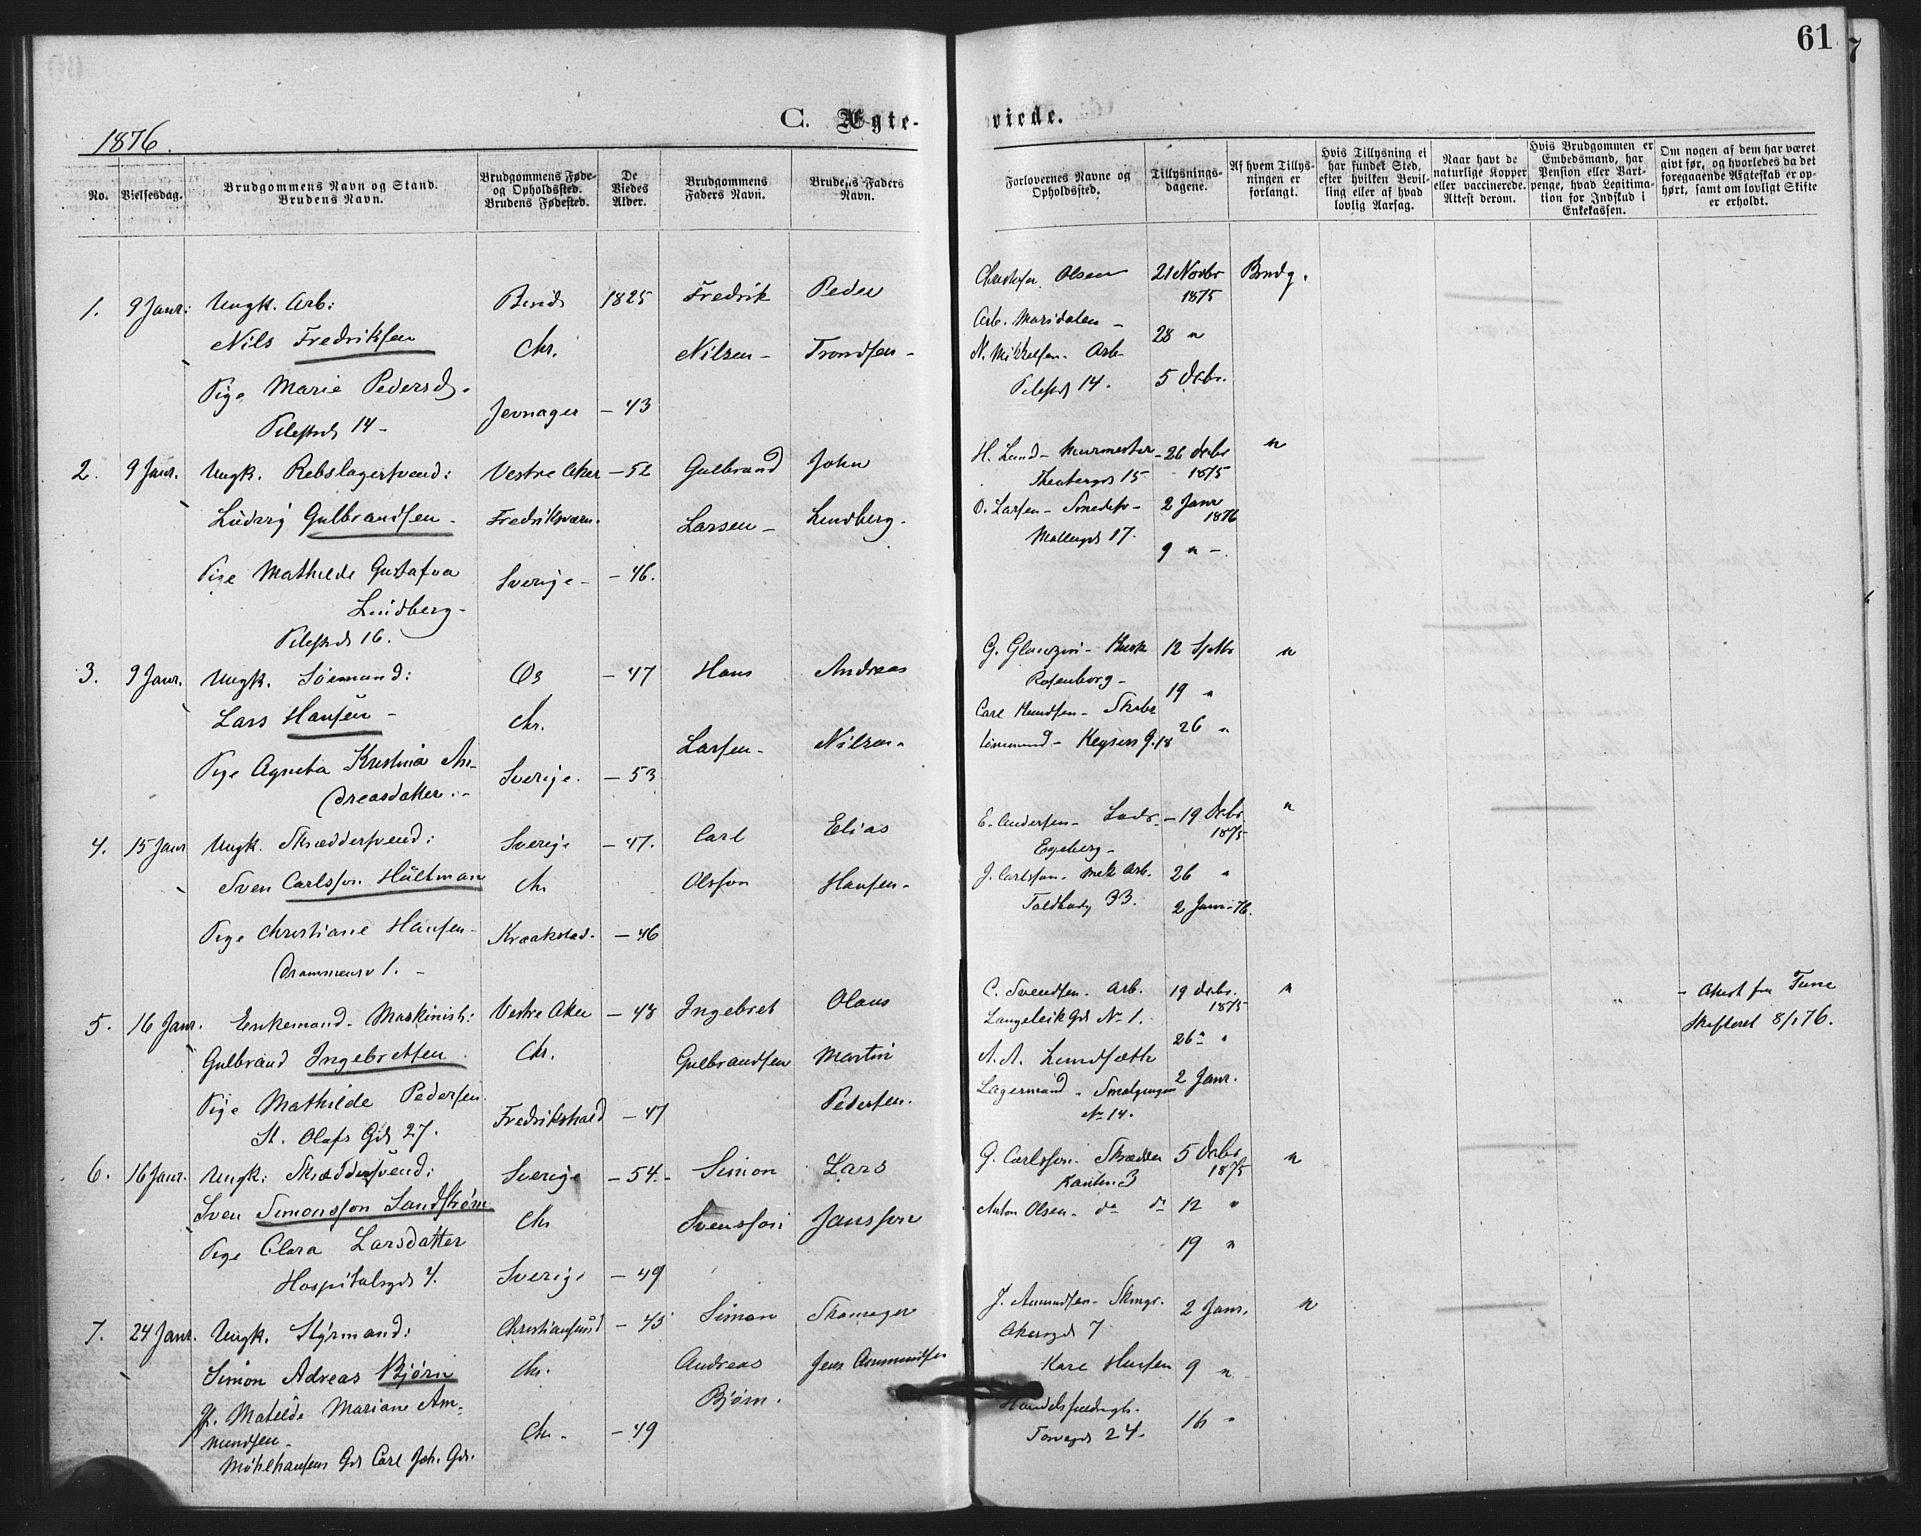 61
C. Ægte-
viede.
1876.
No.
Vielsesdag.
Brudgommens Navn og Stand.
Brudens Navn.
Brudgommens Føde-
og Opholdssted.
Brudens Fødested.
De
Viedes
Alder.
Brudgommens
Faders Navn.
Brudens Faders
Navn.
Forlovernes Navne og
Opholdssted.
Tillysnings-
dagene.
Af hvem Tillys-
ningen er
forlangt.
Hvis Tillysning ei
har fundet Sted,
efter hvilken Bevil-
ling eller af hvad
lovlig Aarsag.
Naar havt de
naturlige Kopper
eller vaccinerede.
Attest derom.
Hvis Brudgommen er
Embedsmand, har
Pension eller Vart-
penge, hvad Legitima-
tion for Indskud i
Enkekassen.
Om nogen af dem har været
givt før, og hvorledes da det
foregaaende Ægteskab er op-
hørt, samt om lovligt Skifte
er erholdt.
1. 9 Janr: Ungk. Arb: 1825 Fredrik Peder
Nils Fredriksen Chr. Nilsen - Trondsen -
Pige Marie Pedersd. Jevnager - 43
Pilestrds 14 -
Christofer Olsen 21 Novbr 1875 Brudg.
Arb. Maridalen - 28 "
N. Mikkelsen. Arb- 5 Dcbr.
Pilestrds 14.
2. 9 Janr. Ungk. Rebslagersvend: Vestre Aker - 52 Gulbrand John
Ludvig Gulbrandsen - Fredriksværn. Larsen - Lindberg.
Pige Mathilde Gustafva Sverige - - 46.
Lindberg -
Pilestrds 16.
H. Lund - Murmester - 26 Dcbr 1875 "
Theatergd 15
O. Larsen - Smedesv - 2 Janr 1876
Møllergd 17. 9 " -
3. 9 Janr. Ungk. Sømand: Os - 47 Hans Andreas
Lars Hansen - Chr. Larsen - Nilsen -
Pige Agneta Kristina An- Sverige. - 53
dreasdatter. -
12 Sptbr "
Rosenborg - 19 "
26 "
Keysers G. 18
4. 15 Janr Ungk. Skræddersvend: Sverige - 47. Carl Elias
Sven Carlsson Hultman Chr Olsson Hansen -
Pige Christiane Hansen - Kraakstad - - 46
Drammensv 1. -
E. Andersen - - 19 Dcbr 1875 "
Egeberg -
J. Carlsson - Mek Arb. 26 "
Toldbodg 33. 2 Janr - 76.
5. 16 Janr. Enkemand. Maskinist: Vestre Aker - 48 Ingebret Olaus
Gulbrand Ingebretsen. Chr. Gulbrandsen Martin
Pige Mathilde Pedersen. Fredrikshald - 47 Pedersen.
St. Olafs Gd 27.
C. Svendsen. Arb. 19 Dcbr. 1875 " - Attest fra Tune
Langeleik Gd No 1. Skifteret 8/1 76.
A. A. Lundsæth 26 "
Lagermand - 2 Janr.
No 14.
6. 16 Janr. Ungk: Skræddersvend: Sverige - 54. - Simon Lars
Sven Simonsson Sandström Chr Svensson Jansson
Pige Clara Larsdatter Sverige - 49
Hospitalsgd 4.
G. Carlsson - Skrædder 5 Dcbr 1875 "
3
Anton Olsen - do do 12 "
19 "
7. 24 Janr. Ungk. Styrmand: Christiansund - 45 Simon
Simon Adreas Bjørn Chr. Andreas Jens Ammundsen
P. Matilde Mariane Am- Chr. - 49 Bjørn.
mundsen -
Carl Joh. Gd.
J. Amundsen - 2 Janr. "
Akersgd 7
Kare Hansen 9 "
Torvegd 24. 16 "